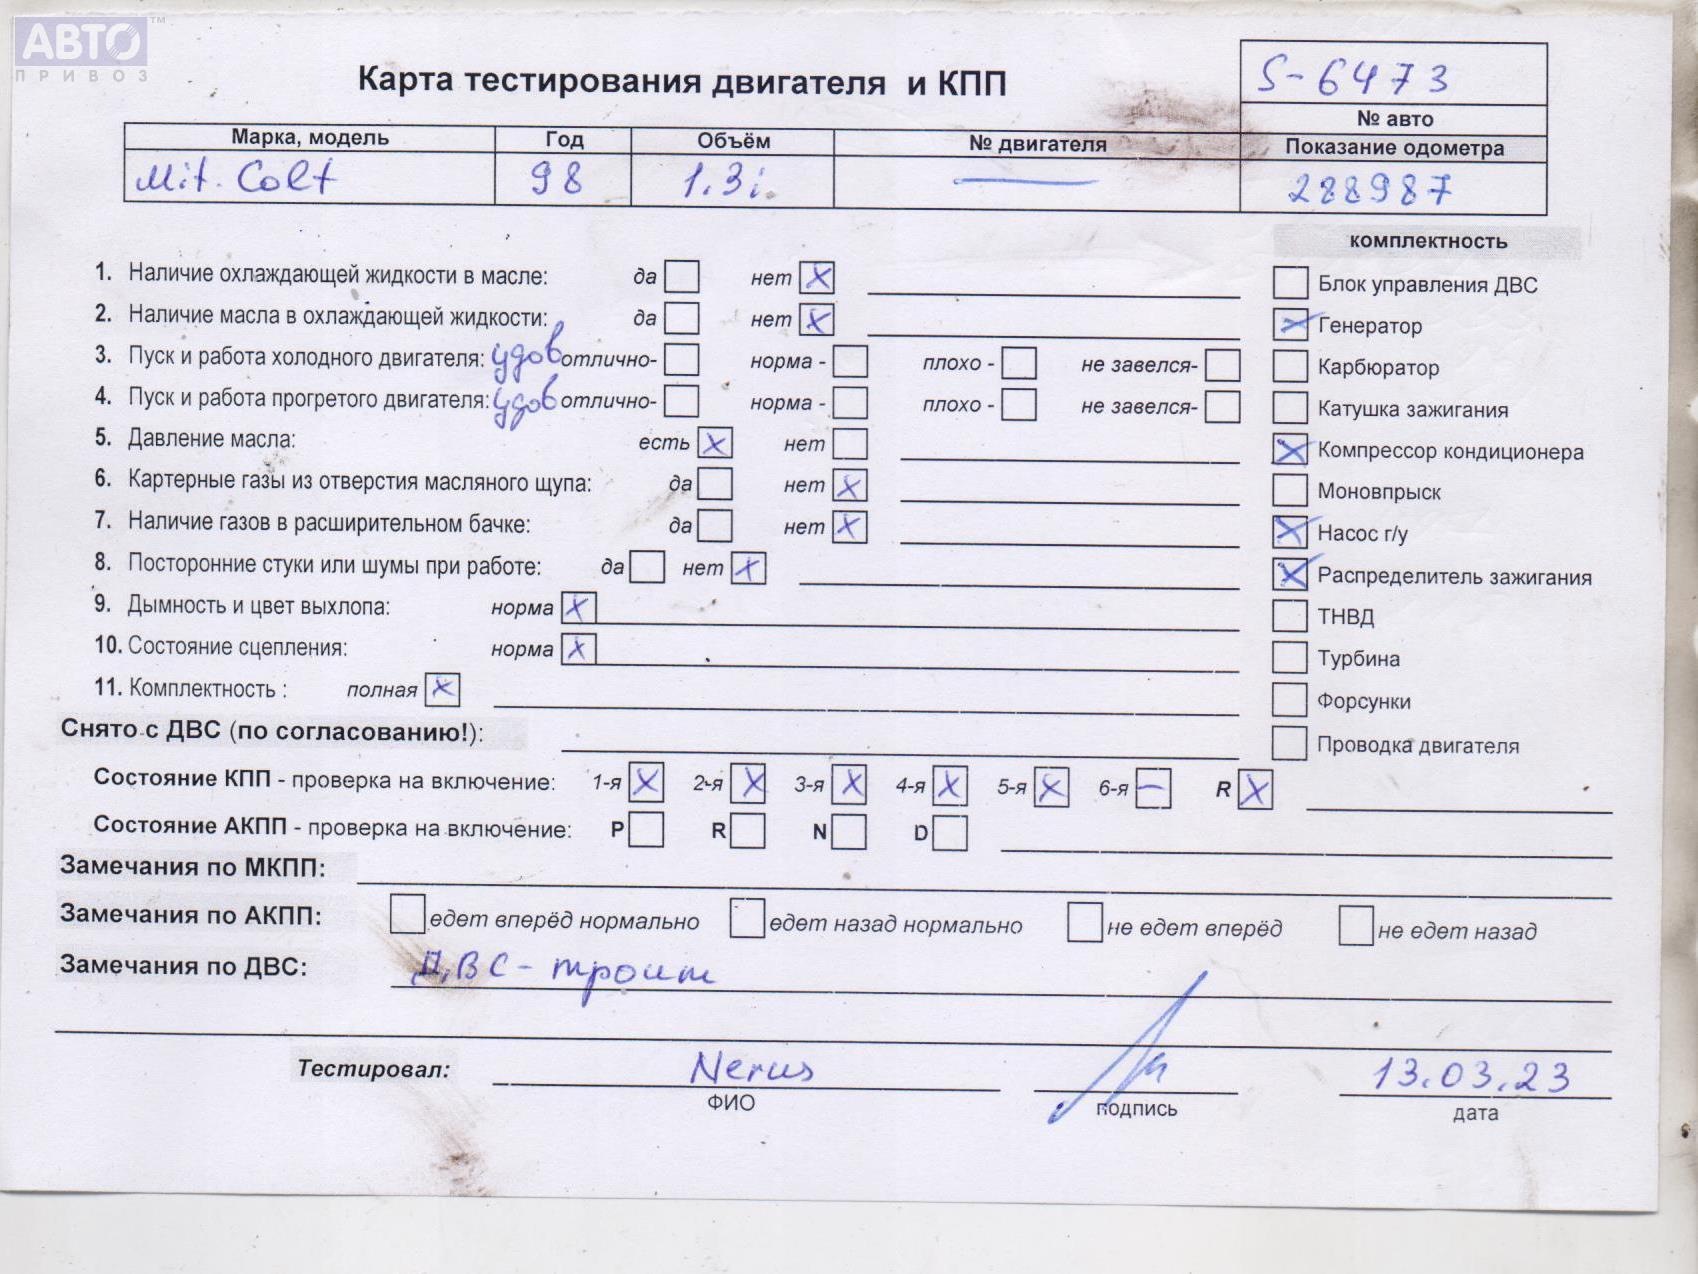 АВТО™
ПРИВОЗ
Карта тестирования двигателя и КПП
S-6473
№ авто
Марка, модель Год Объём № двигателя Показание одометра
Mit. Colt 98 1.3i — 288987
комплектность
1. Наличие охлаждающей жидкости в масле: да нет X
Блок управления ДВС
2. Наличие масла в охлаждающей жидкости: да нет X
X Генератор
3. Пуск и работа холодного двигателя: удов отлично- норма - плохо - не завелся-
Карбюратор
4. Пуск и работа прогретого двигателя: удов отлично- норма - плохо - не завелся-
Катушка зажигания
5. Давление масла: есть X нет
X Компрессор кондиционера
6. Картерные газы из отверстия масляного щупа: да нет X
Моновпрыск
7. Наличие газов в расширительном бачке: да нет X
X Насос г/у
8. Посторонние стуки или шумы при работе: да нет X
X Распределитель зажигания
9. Дымность и цвет выхлопа: норма X
ТНВД
10. Состояние сцепления: норма X
Турбина
11. Комплектность : полная X
Форсунки
Снято с ДВС (по согласованию!):
Проводка двигателя
Состояние КПП - проверка на включение: 1-я X 2-я X 3-я X 4-я X 5-я X 6-я – R X
Состояние АКПП - проверка на включение: P R N D
Замечания по МКПП:
Замечания по АКПП: едет вперёд нормально едет назад нормально не едет вперёд не едет назад
Замечания по ДВС: ДВС - троит
Тестировал: Nerus 13.03.23
ФИО подпись дата